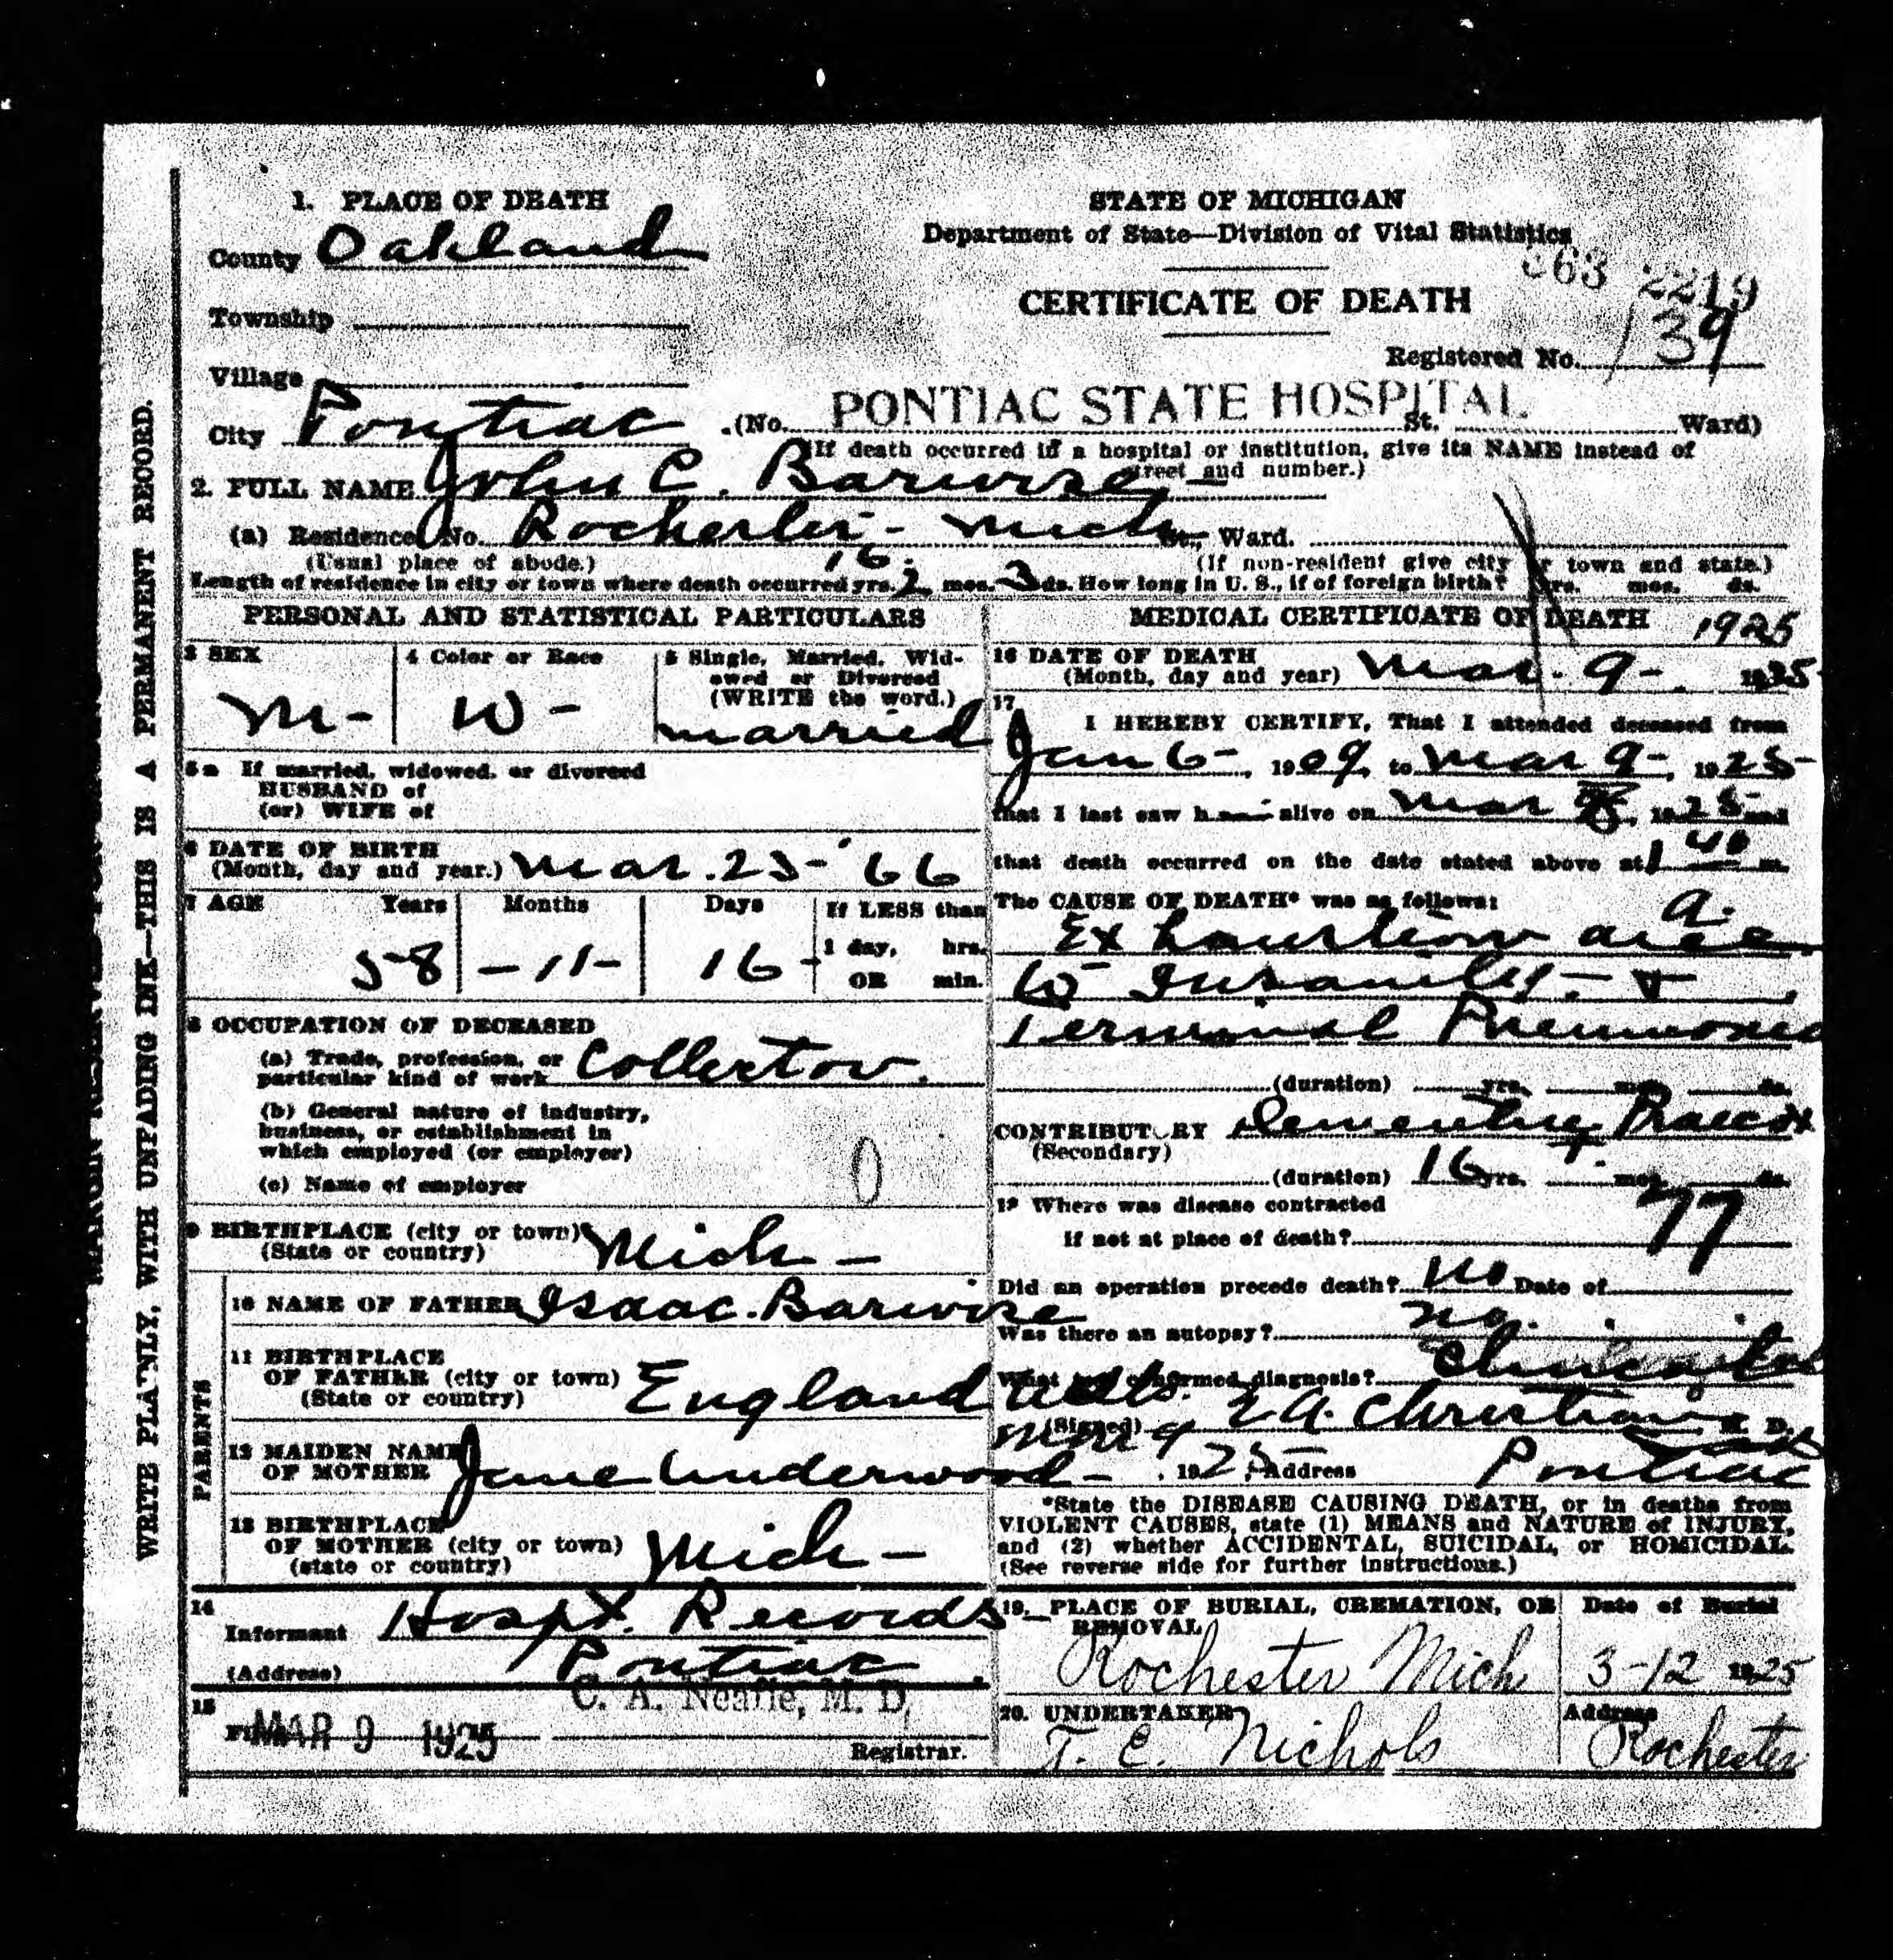 1. PLACE OF DEATH
County Oakland
Township
Village
City Pontiac
STATE OF MICHIGAN
Department of State—Division of Vital Statistics
363 2219
CERTIFICATE OF DEATH
Registered No. 139
(No. PONTIAC STATE HOSPITAL St. Ward)
(If death occurred in a hospital or institution, give its NAME instead of
street and number.)
2. FULL NAME John C. Barwise
(a) Residence No. Rochester - Mich St., Ward.
(Usual place of abode.) (If non-resident give city or town and state.)
Length of residence in city or town where death occurred 16 yrs. 2 mos. 3 ds. How long in U. S., if of foreign birth? yrs. mos. ds.
PERSONAL AND STATISTICAL PARTICULARS
3 SEX
M-
4 Color or Race
W-
5 Single, Married, Wid-
owed or Divorced
(WRITE the word.)
married
5a If married, widowed, or divorced
HUSBAND of
(or) WIFE of
6 DATE OF BIRTH
(Month, day and year.) Mar. 23-'66
7 AGE Years Months Days If LESS than
1 day, hrs.
OR min.
58 - 11 - 16 -
8 OCCUPATION OF DECEASED
(a) Trade, profession, or
particular kind of work Collector.
(b) General nature of industry,
business, or establishment in
which employed (or employer)
(c) Name of employer
9 BIRTHPLACE (city or town)
(State or country) Mich -
PARENTS
10 NAME OF FATHER Isaac. Barwise
11 BIRTHPLACE
OF FATHER (city or town)
(State or country) England
12 MAIDEN NAME
OF MOTHER Jane Underwood -
13 BIRTHPLACE
OF MOTHER (city or town)
(state or country) Mich -
14
Informant Hospt. Records
(Address) Pontiac
15
Filed MAR 9 1925
C. A. Neafie, M. D.
Registrar.
MEDICAL CERTIFICATE OF DEATH 1925
16 DATE OF DEATH
(Month, day and year) Mar. 9-. 1925
17
I HEREBY CERTIFY, That I attended deceased from
Jan 6-, 1909, to Mar 9-, 1925
that I last saw h alive on Mar 1925 and
that death occurred on the date stated above at 1 40 a. m.
The CAUSE OF DEATH* was as follows:
Exhaustion due
to Insanity - &
Terminal Pneumonia
(duration) yrs. mos. ds.
CONTRIBUTORY Dementia Praecox
(Secondary)
(duration) 16 yrs. mos. ds.
18 Where was disease contracted
if not at place of death?
77
Did an operation precede death? No Date of
Was there an autopsy? no.
What test confirmed diagnosis? Clinical
(Signed) E A. Christian M. D.
Mar 9, 1925, Address Pontiac
*State the DISEASE CAUSING DEATH, or in deaths from
VIOLENT CAUSES, state (1) MEANS and NATURE of INJURY,
and (2) whether ACCIDENTAL, SUICIDAL, or HOMICIDAL.
(See reverse side for further instructions.)
19. PLACE OF BURIAL, CREMATION, OR
REMOVAL
Rochester Mich
Date of Burial
3-12 1925
20. UNDERTAKER
T. C. Nichols
Address
Rochester
WRITE PLAINLY, WITH UNFADING INK—THIS IS A PERMANENT RECORD.